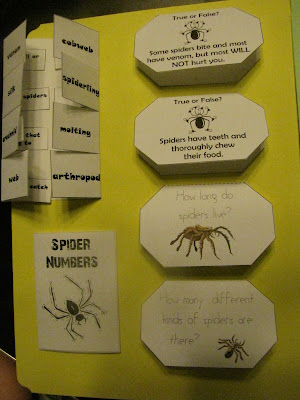 venom
silk
web
ll or
spiders
that
to
catch
cobweb
spiderling
molting
arthropod
SPIDER
NUMBERS
True or False?
Some spiders bite and most
have venom, but most WILL
NOT hurt you.
True or False?
Spiders have teeth and
thoroughly chew
their food.
How long do
spiders live?
How many different
kinds of spiders are
there?